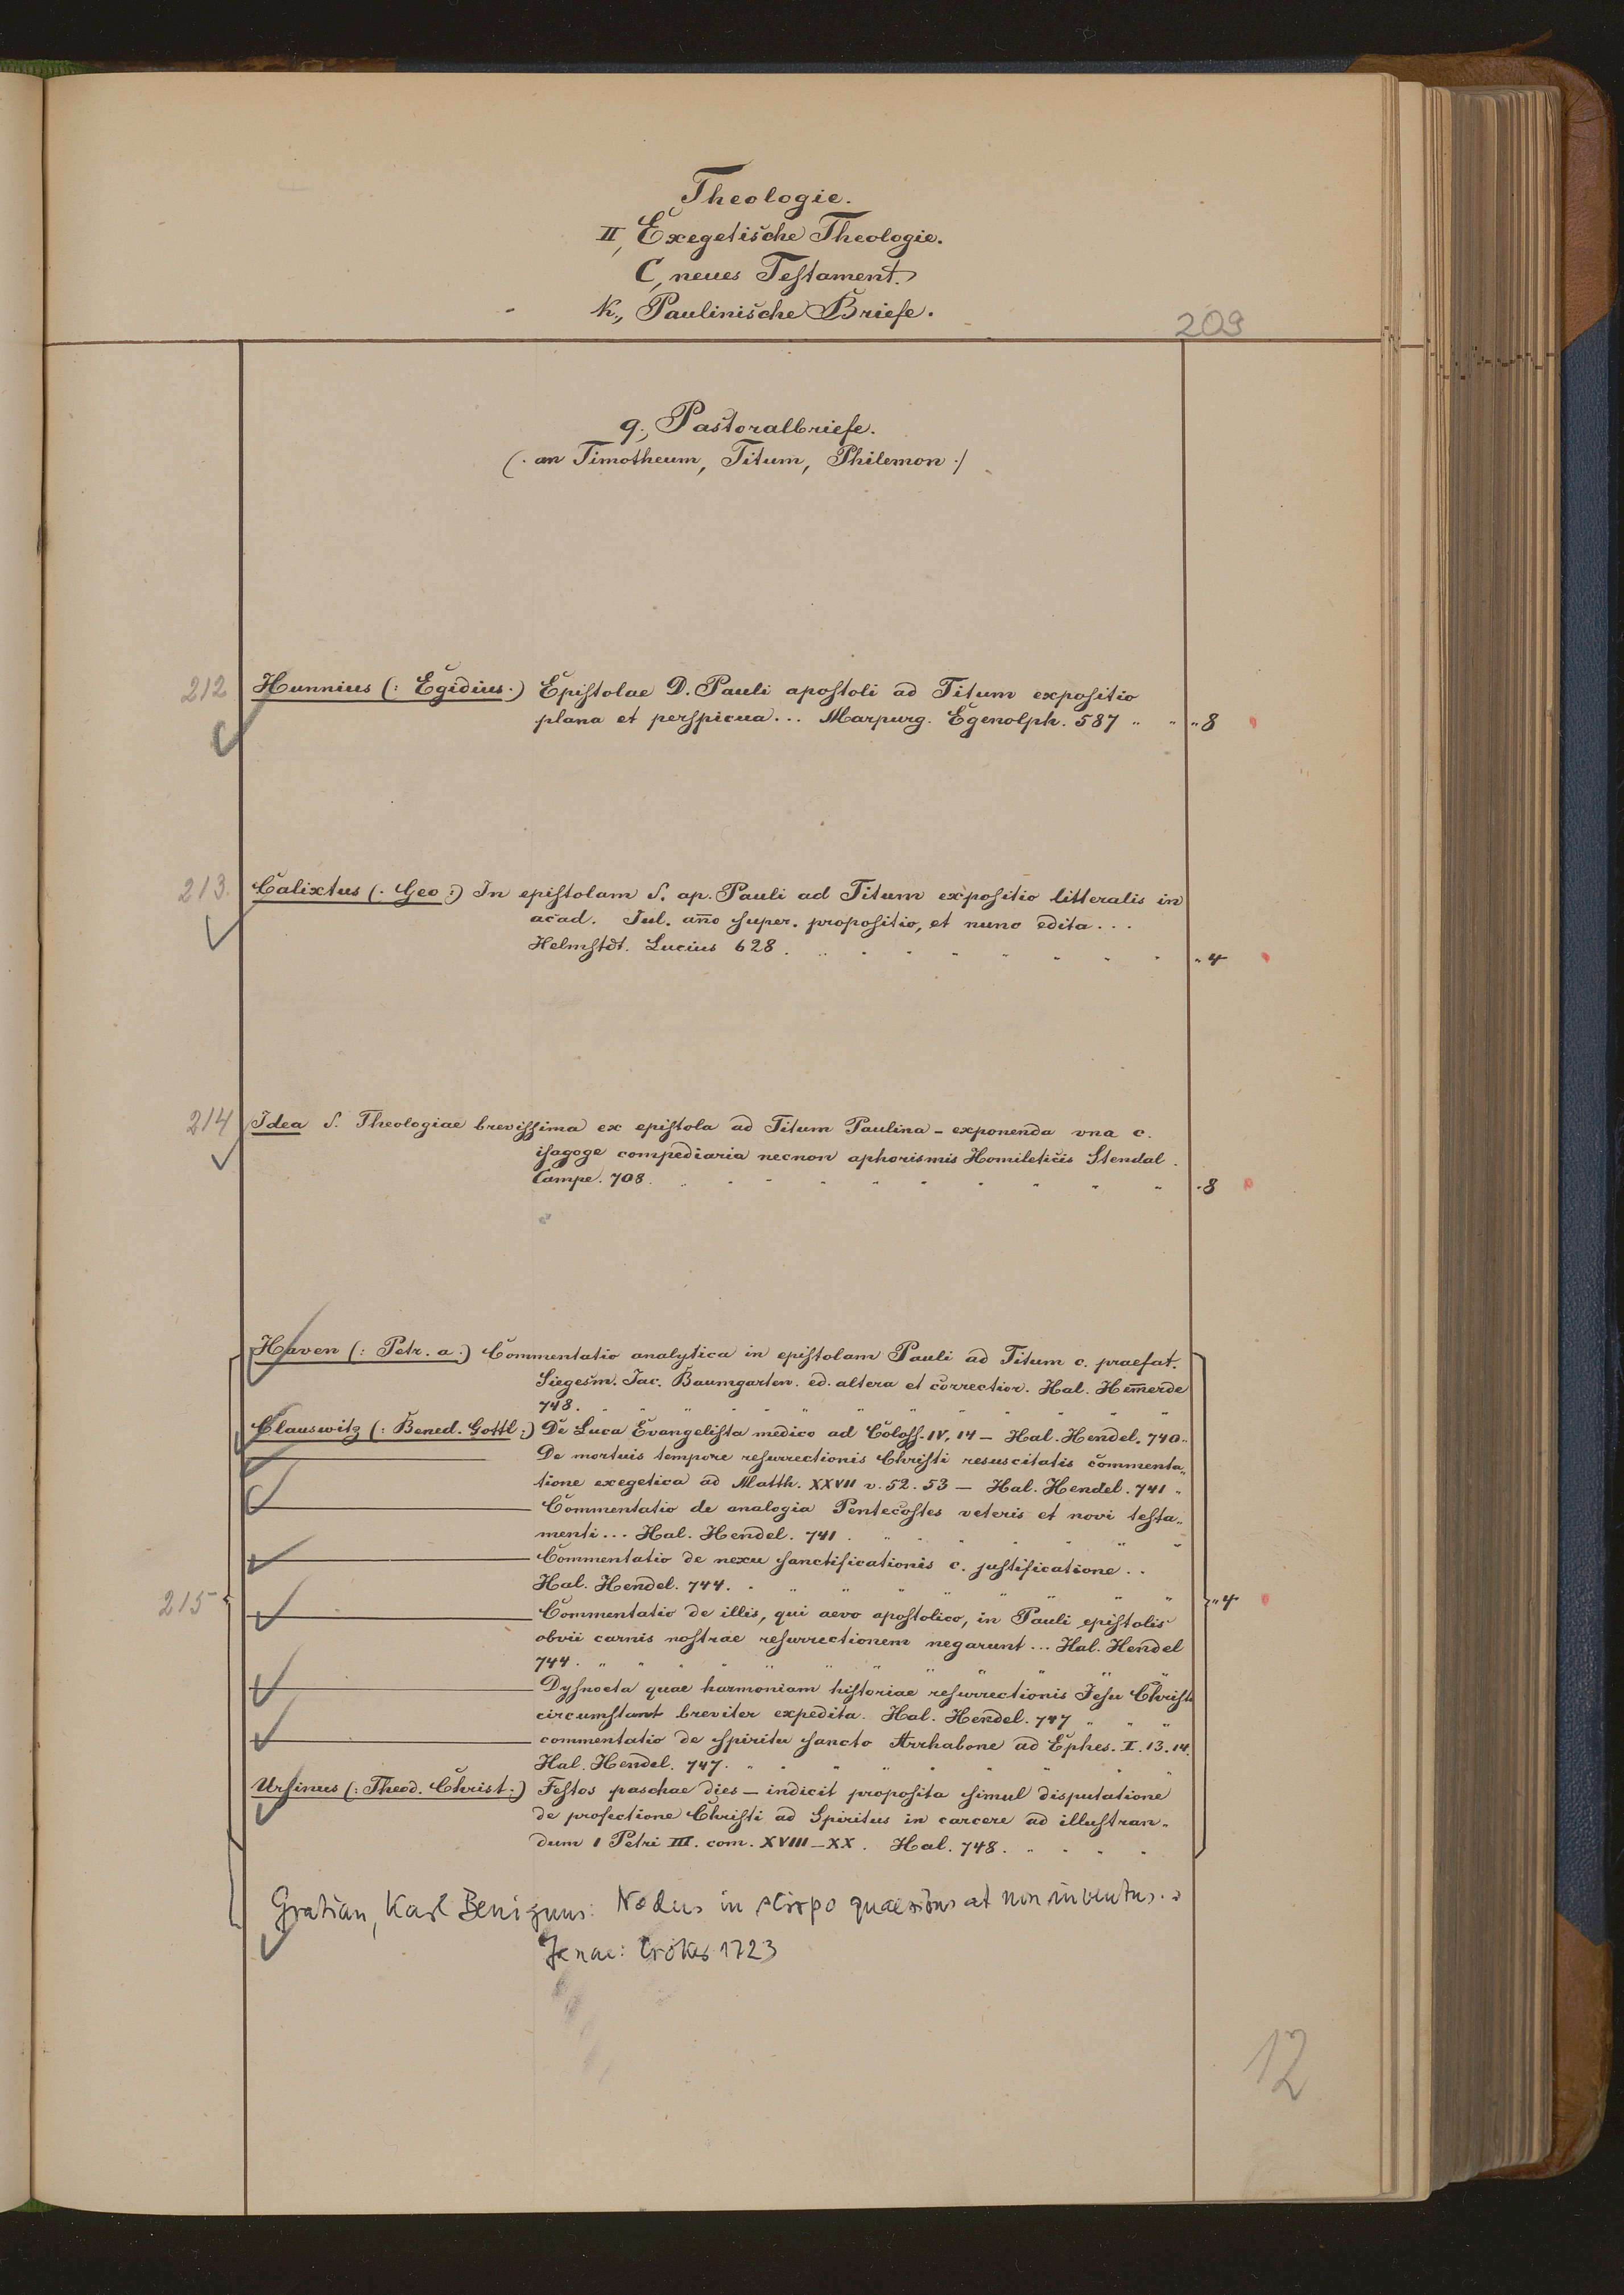 Theologie.
II, Exegetische Theologie.
C, neues Testament.
k., Paulinische Briefe.
209
q., Pastoralbriefe.
(. an Timotheum, Titum, Philemon ./
212 Hunnius (: Egidius.) Epistolae D. Pauli apostoli ad Titum expositio
plana et perspicua... Marpurg. Egenolph. 587 " " " 8
213. Calixtus (. Geo :) In epistolam S. ap. Pauli ad Titum expositio litteralis in
acad. Jul. año super. propositio, et nunc edita...
Helmstdt. Lucius 628. " 4
214 Idea S. Theologiae brevissima ex epistola ad Titum Paulina - exponenda vna c.
isagoge compediaria necnon aphorismis Homileticis Stendal.
Campe. 708. . 8
Haven (: Petr. a :) Commentatio analytica in epistolam Pauli ad Titum c. praefat.
Siegesm. Jac. Baumgarten. ed. altera et correctior. Hal. Hem̄erde
748.
Clauswitz (: Bened. Gottl :) De Luca Evangelista medico ad Coloss. IV, 14 - Hal. Hendel. 740.
De mortuis tempore resurrectionis Christi resuscitatis commenta„
tione exegetica ad Matth. XXVII v. 52. 53 — Hal. Hendel. 741 "
Commentatio de analogia Pentecostes veteris et novi testa„
menti... Hal. Hendel. 741.
Commentatio de nexu sanctificationis c. justificatione..
Hal. Hendel. 744.
215 Commentatio de illis, qui aevo apostolico, in Pauli epistolis " 4
obvii carnis nostrae resurrectionem negarunt... Hal. Hendel
744.
Dysnoeta quae harmoniam historiae resurrectionis Jesu Christi
circumstant breviter expedita. Hal. Hendel. 747
commentatio de spiritu sancto Arrhabone ad Ephes. I. 13. 14.
Hal. Hendel. 747.
Ursinus (: Theod. Christ :) Festos paschae dies — indicit proposita simul disputatione
de profectione Christi ad Spiritus in carcere ad illustran„
dum 1 Petri III. com. XVIII-XX. Hal. 748.
Gratian, Karl Benignus: Nodus in scirpo quaesitus at non inventus..
Jenae: Cröker 1723
12